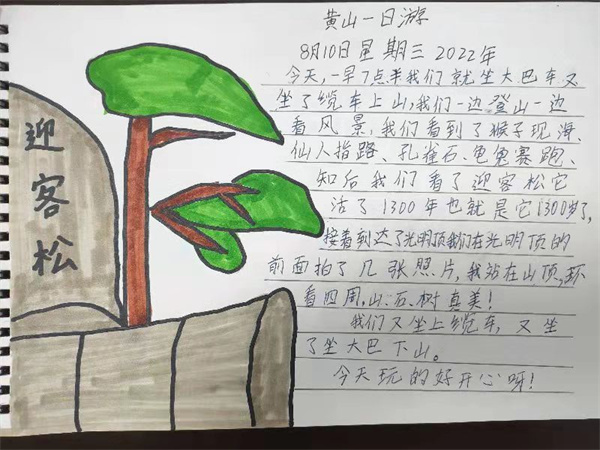 迎
客
松
黄山一日游
8月10日星期三2022年
今天,一早7点半我们就坐大巴车又
坐了缆车上山,我们一边登山一边
看风景,我们看到了猴子现海、
仙人指路、孔雀石、龟兔赛跑、
知后我们看了迎客松它
活了1300年也就是它1300岁了,
接着到达了光明顶我们在光明顶的
前面拍了几张照片,我站在山顶,环
看四周,山、石、树真美!
我们又坐上缆车,又坐
了坐大巴下山。
今天玩的好开心呀!